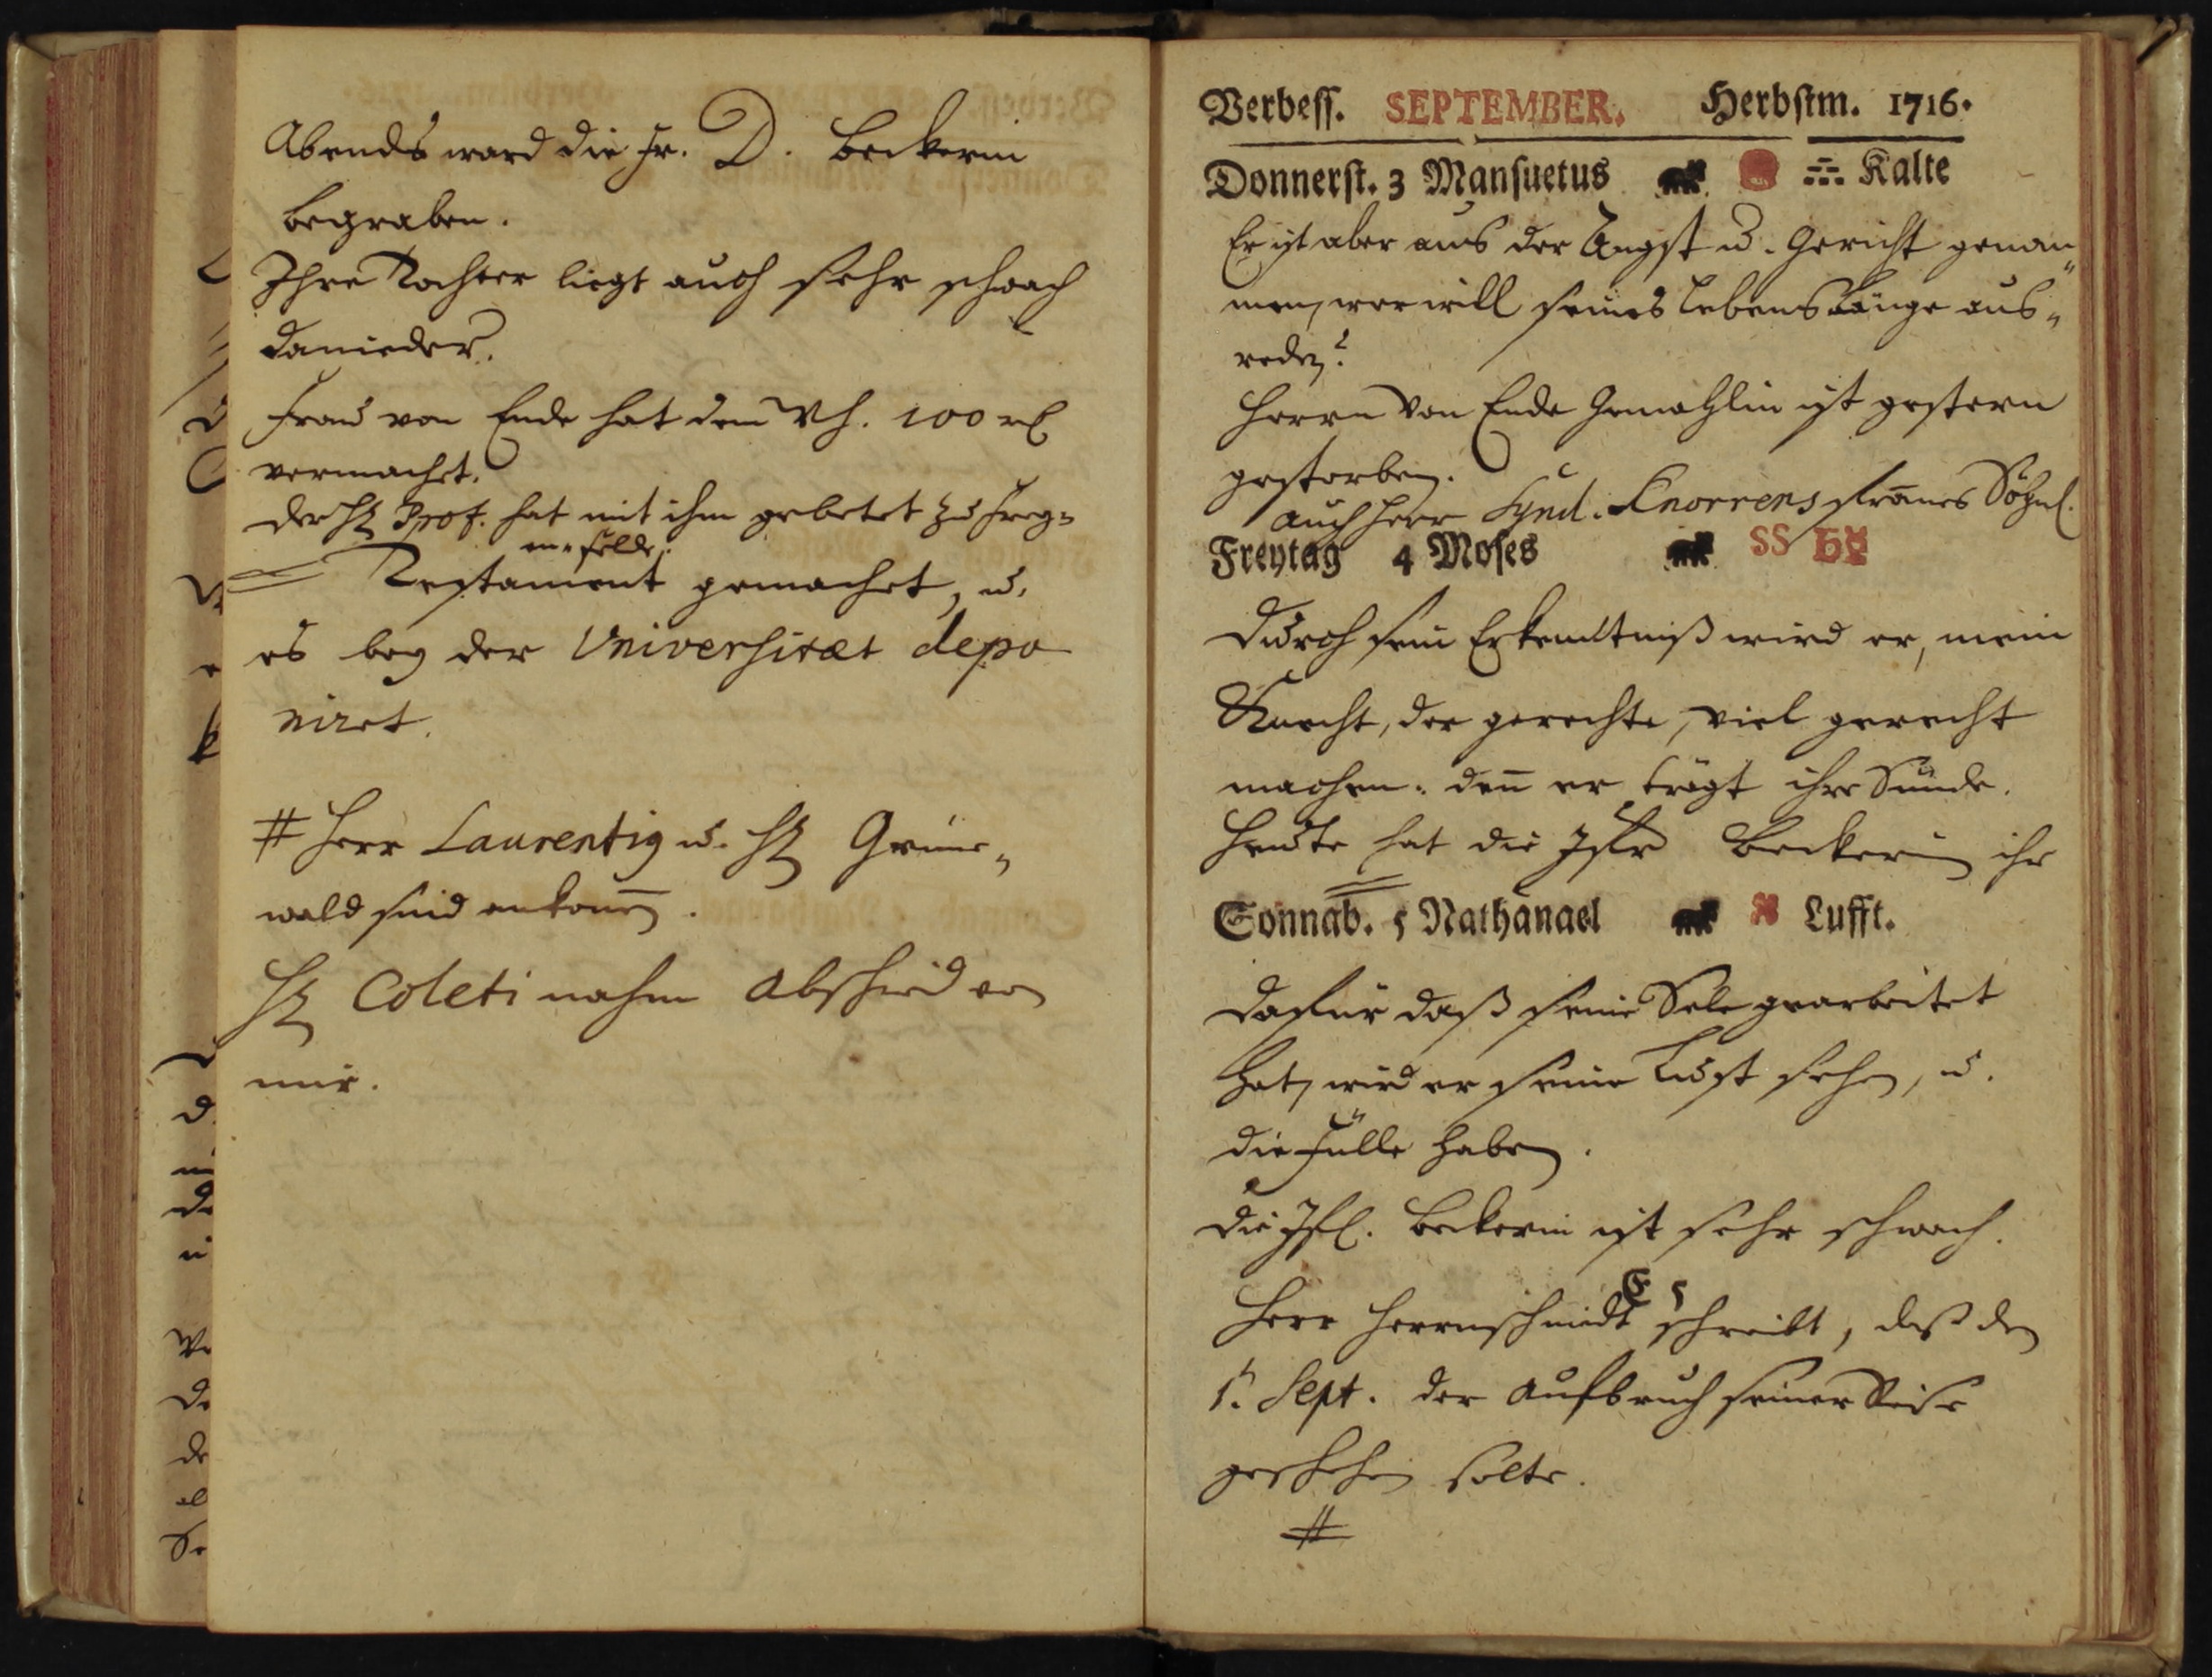 Abends ward die Fr. D. Beckerin
begraben.
Ihre Tochter liegt auch sehr schwach
danieder.
Frau von Ende hat dem Wh. 100 rl
vermachet.
der H Prof. hat mit ihm gebetet zu Frey-
en-felde.
Testament gemachet, u.
es bey der Universitæt depo
niret.
# Herr Laurentig u. H Grune„
wald sind ankom̄en.
H Coleti nahm Abschied von
mir.
Verbess. SEPTEMBER. Herbstm. 1716.
Donnerst. 3 Mansuetus Kalte
Er ist aber aus der Angst u. Gericht genom„
men, wer will seines Lebens Länge aus„
reden?
Herrn von Ende Gemahlin ist gestern
gestorben.
auch Herr Synd. Knorrens kranes Söhnl.
Freytag 4 Moses SS ♄
Durch sein Erkendtniß wird er, mein
Knecht, der gerechte, viel gerecht
machen: den̄ er trägt ihre Sünde.
Heute hat die Jfr Beckerin ihr
Sonnab. 5 Nathanael Lufft.
Dafür daß seine Sele gearbeitet
hat, wird er seine Lust sehen, u.
die Fülle haben.
die Jfl. Beckerin ist sehr schwach.
Herr Herrnschmidt schreibt, daß den
1. Sept. der Aufbruch seiner Reise
geschehen solte.
#